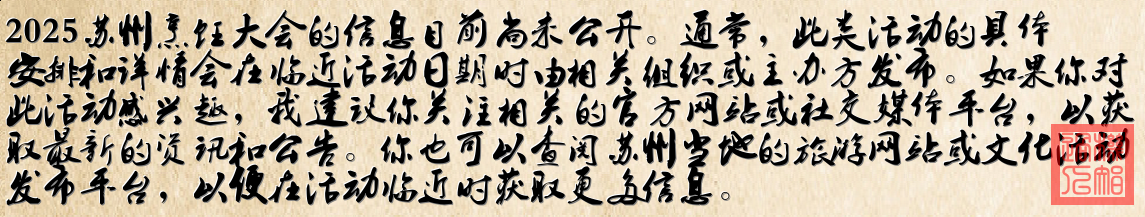 2025苏州烹饪大会的信息目前尚未公开。通常，此类活动的具体
安排和详情会在临近活动日期时由相关组织或主办方发布。如果你对
此活动感兴趣，我建议你关注相关的官方网站或社交媒体平台，以获
取最新的资讯和公告。你也可以查阅苏州当地的旅游网站或文化活动
发布平台，以便在活动临近时获取更多信息。